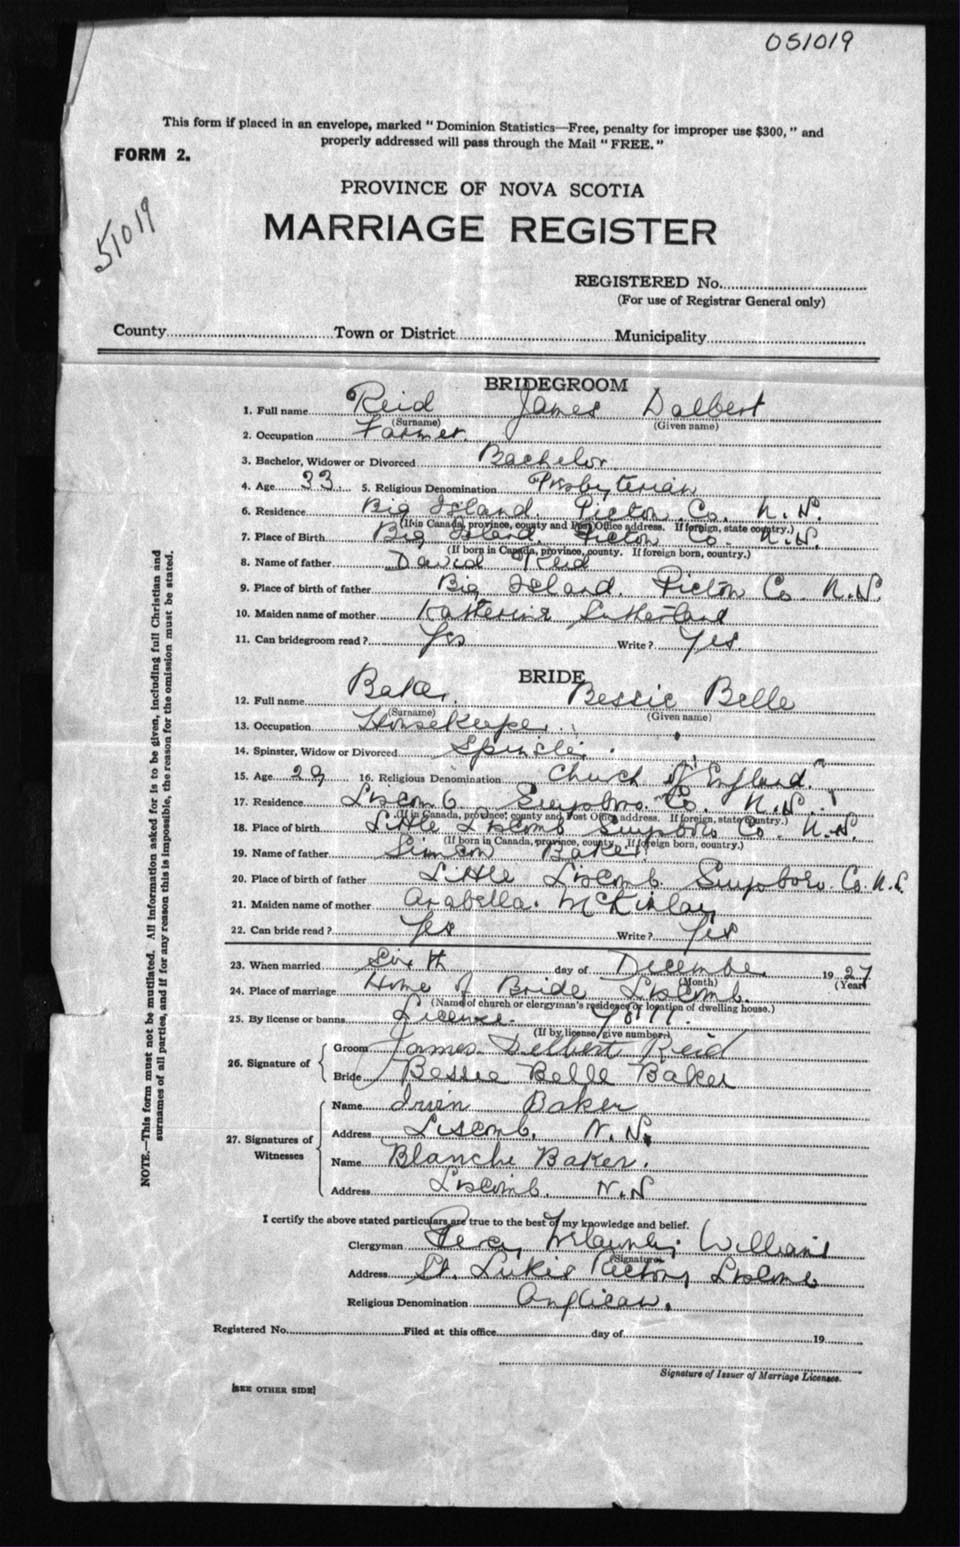 051019
This form if placed in an envelope, marked "Dominion Statistics—Free, penalty for improper use $300," and
properly addressed will pass through the Mail "FREE."
FORM 2.
51019
PROVINCE OF NOVA SCOTIA
MARRIAGE REGISTER
REGISTERED No.
(For use of Registrar General only)
County Town or District Municipality
BRIDEGROOM
1. Full name Reid James Dalbert
(Surname) (Given name)
2. Occupation Farmer.
3. Bachelor, Widower or Divorced Bachelor
4. Age 33. 5. Religious Denomination Presbyterian
6. Residence Big Island. Picton Co. N.S.
(If in Canada, province, county and Post Office address. If foreign, state country.)
7. Place of Birth Big Island. Picton Co. N.S.
(If born in Canada, province, county. If foreign born, country.)
8. Name of father David Reid
9. Place of birth of father Big Island. Picton Co. N.S.
10. Maiden name of mother Katherine Sutherland
11. Can bridegroom read? Yes Write? Yes.
BRIDE
12. Full name Baker. Bessie Belle
(Surname) (Given name)
13. Occupation Housekeeper.
14. Spinster, Widow or Divorced
15. Age 29 16. Religious Denomination "Church of England."
17. Residence Liscomb. Guysboro. Co. N.S.
(If in Canada, province, county and Post Office address. If foreign, state country.)
18. Place of birth Little Liscomb Guysboro Co. N.S.
(If born in Canada, province, county. If foreign born, country.)
19. Name of father Simeon Baker
20. Place of birth of father Little Liscomb. Guysboro. Co. N.S.
21. Maiden name of mother Arabella. McKinlay
22. Can bride read? Yes Write? Yes
23. When married Sixth day of December 1927
(Month) (Year)
24. Place of marriage Home of Bride Liscomb.
(Name of church or clergyman's residence or location of dwelling house.)
25. By license or banns License.
(If by license give number)
26. Signature of
Groom James Delbert Reid
Bride Bessie Belle Baker
27. Signatures of Witnesses
Name Irvin Baker
Address Liscomb. N.S.
Name Blanche Baker.
Address Liscomb. N.S
I certify the above stated particulars are true to the best of my knowledge and belief.
Clergyman Percy Williams
(Signature)
Address St. Lukes Rectory Liscomb
Religious Denomination Anglican.
Registered No. Filed at this office day of 19
Signature of Issuer of Marriage Licenses.
[SEE OTHER SIDE]
NOTE.—This form must not be mutilated. All information asked for is to be given, including full Christian and
surnames of all parties, and if for any reason this is impossible, the reason for the omission must be stated.